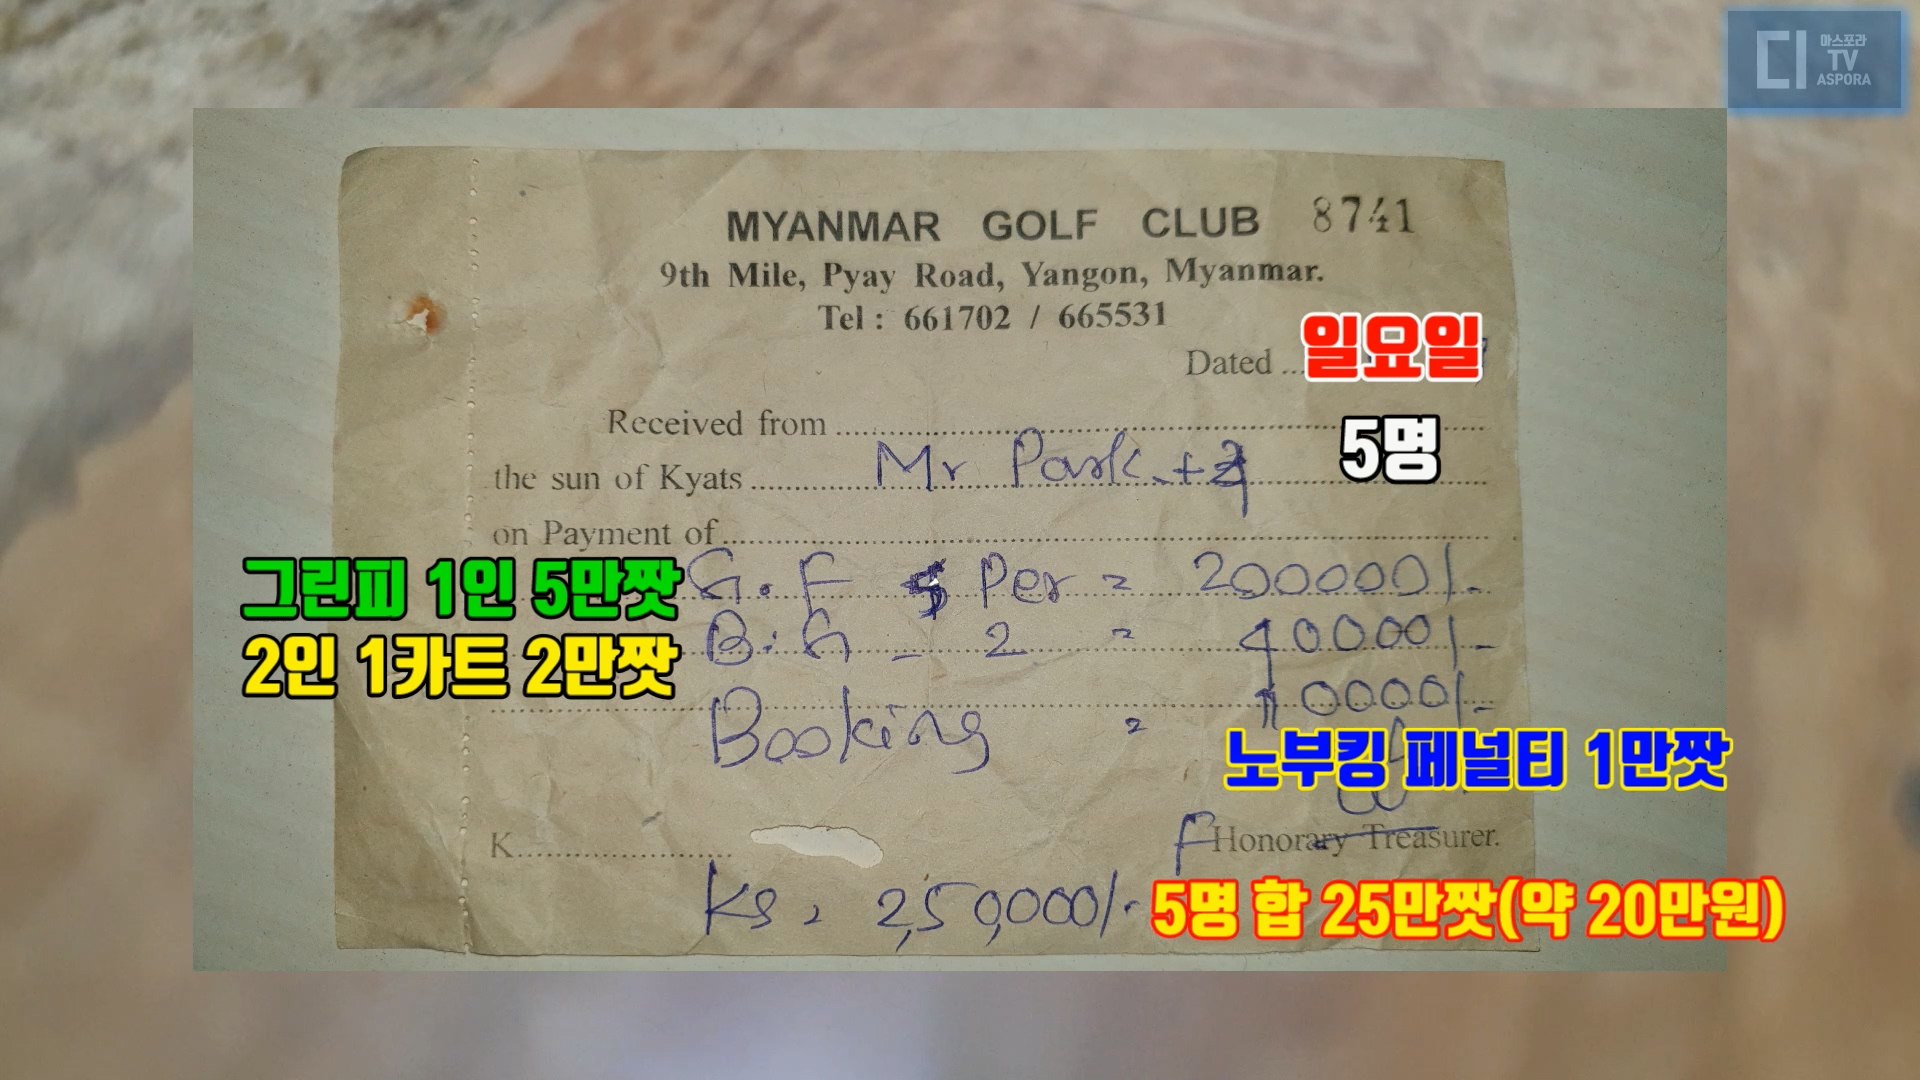 디 아스포라
TV
ASPORA
MYANMAR GOLF CLUB 8741
9th Mile, Pyay Road, Yangon, Myanmar.
Tel : 661702 / 665531
Dated ... 일요일
Received from
5명
the sun of Kyats Mr Park +4
on Payment of
그린피 1인 5만짯
G.F 5 Per = 200000/-
2인 1카트 2만짯
B.G - 2 = 40000/-
Booking = 10000/-
노부킹 페널티 1만짯
K
F Honorary Treasurer.
Ks, 2,50,000/-
5명 합 25만짯(약 20만원)